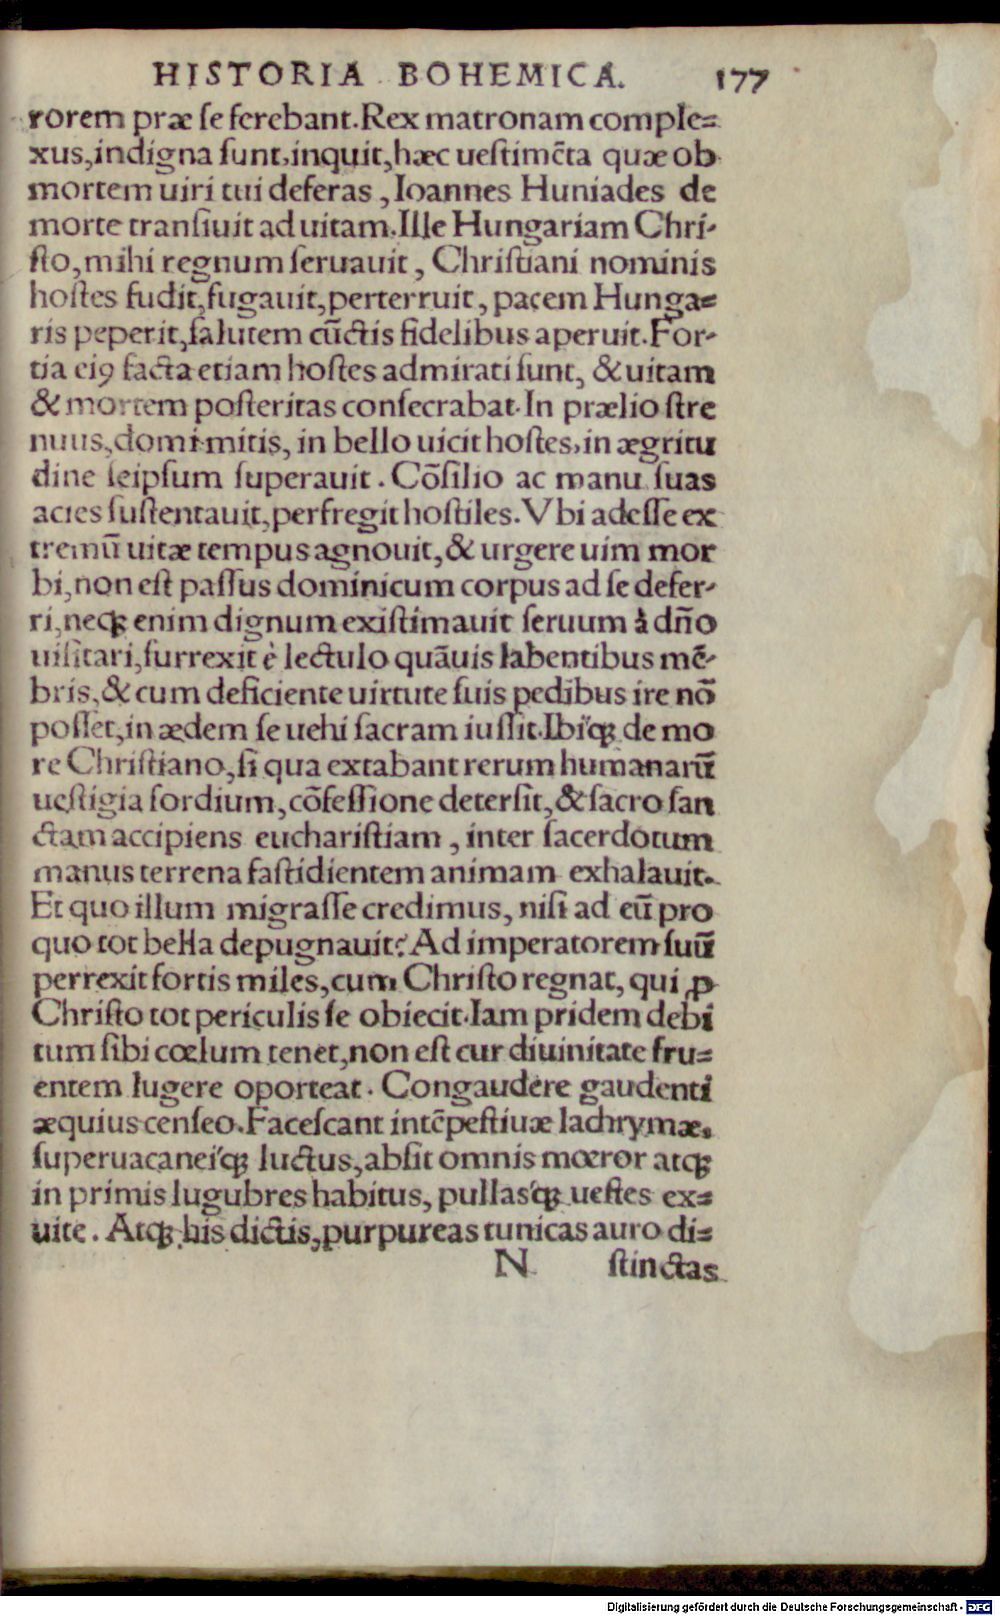 HISTORIA BOHEMICA. 177
rorem præ se ferebant. Rex matronam comple=
xus, indigna sunt, inquit, hæc uestimēta quæ ob
mortem uiri tui deferas, Ioannes Huniades de
morte transiuit ad uitam. Ille Hungariam Chri-
sto, mihi regnum seruauit, Christiani nominis
hostes fudit, fugauit, perterruit, pacem Hunga=
ris peperit, salutem cūctis fidelibus aperuit. For-
tia eiꝰ facta etiam hostes admirati sunt, & uitam
& mortem posteritas consecrabat. In prælio stre
nuus, domi mitis, in bello uicit hostes, in ægritu
dine seipsum superauit. Cōsilio ac manu suas
acies sustentauit, perfregit hostiles. Vbi adesse ex
tremū uitæ tempus agnouit, & urgere uim mor
bi, non est passus dominicum corpus ad se defer-
ri, neqꝫ enim dignum existimauit seruum à dño
uisitari, surrexit è lectulo quāuis labentibus mē-
bris, & cum deficiente uirtute suis pedibus ire nō
posset, in ædem se uehi sacram iussit. Ibiqꝫ de mo
re Christiano, si qua extabant rerum humanarū
uestigia sordium, cōfessione detersit, & sacro san
ctam accipiens eucharistiam, inter sacerdotum
manus terrena fastidientem animam exhalauit.
Et quo illum migrasse credimus, nisi ad eū pro
quo tot bella depugnauit? Ad imperatorem suū
perrexit fortis miles, cum Christo regnat, qui ꝓ
Christo tot periculis se obiecit. Iam pridem debi
tum sibi cœlum tenet, non est cur diuinitate fru=
entem lugere oporteat. Congaudere gaudenti
æquius censeo. Facescant intēpestiuæ lachrymæ,
superuacaneiqꝫ luctus, absit omnis mœror atqꝫ
in primis lugubres habitus, pullasqꝫ uestes ex=
uite. Atqꝫ his dictis, purpureas tunicas auro di=
N stinctas
Digitalisierung gefördert durch die Deutsche Forschungsgemeinschaft - DFG